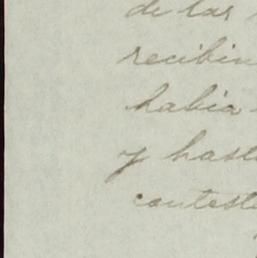 de las
recibin
habia
y hast
contest